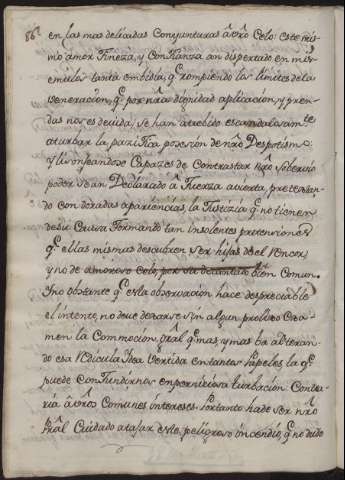 86
en las mas delicadas Conyunturas a vr̃o Celo: este mis
mo amor fineza, y Confianza an dispertado en mis
emulos tanta embidia, q.e rompiendo los limites de la
veneracion, q.e por nr̃a dignidad aplicacion, y pren
das nos es devida, se han atrebido escandalosam.te
aturbar la pazifica posesion de nr̃o Despotismo:
y lisongeandose Capazes de Contrastar nr̃o soberano
poder se an Declarado a fuerza avierta, pretextan
do con doradas apariencias, la Justizia q.e no tienen
de su Causa Formando tan insolentes pretensiones
q.e ellas mismas descubren ser hijas de el Rencor,
y no de amoroso celo, por su decantado bien Comun.
No obstante q.e esta observacion hace despreciable
el intento, no deve dexarse sin algun prolixo exa
men la Commocion, gr̃al q.e mas, y mas ba alteran
do esa ridicula Idea Vertida en tantos Papeles la q.e
puede Confundirnos en perniciosa turbacion: Contra
ria a vr̃os Comunes intereses. Portanto ha de ser nr̃o
Pr̃al Cuidado atajar este peligroso incendio, q.e no dudo